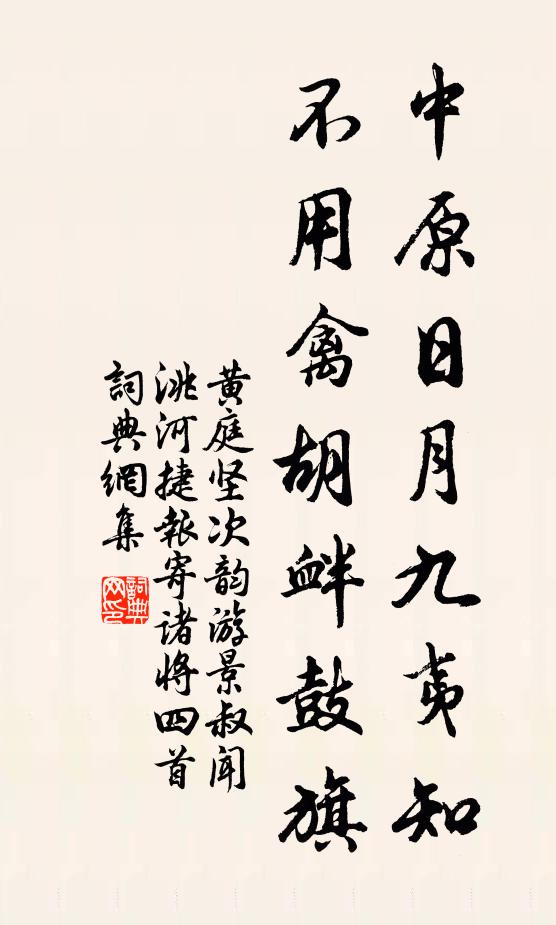 中原日月九夷知
不用禽胡衅鼓旗
黄庭坚次韵游景叔闻
洮河捷報寄诸将四首
詞典網集
詞典網印